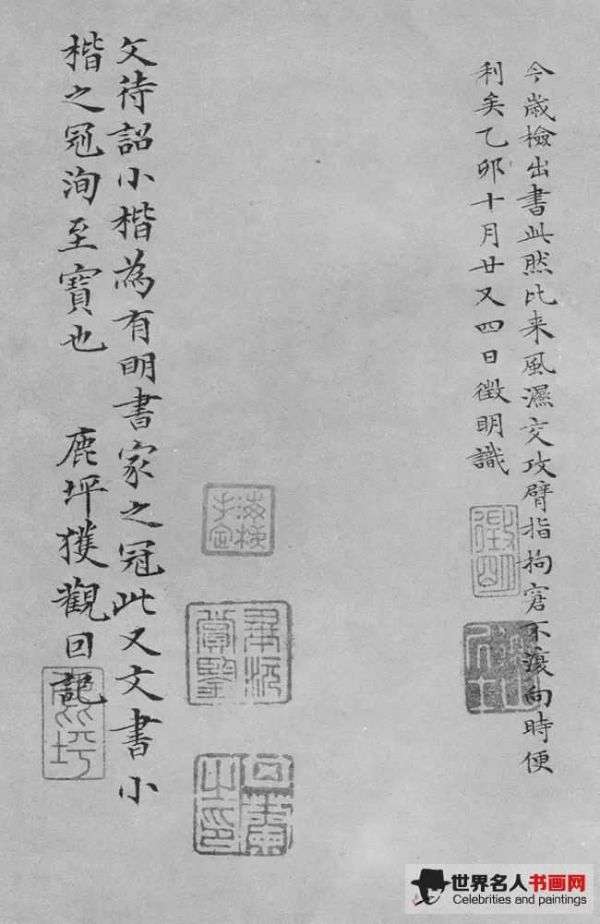 今歲檢出書此然比来風濕交攻臂指拘窘不復向時便
利矣乙卯十月廿又四日徵明識
徵明
文待詔小楷為有明書家之冠此又文書小
楷之冠洵至寶也 鹿坪獲觀因記
鹿坪
世界名人书画网
Celebrities and paintings